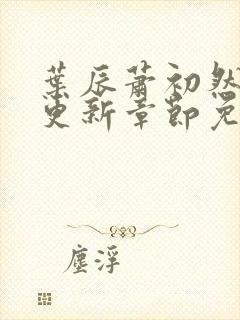 葉辰蕭初然
更新章節免
塵浮